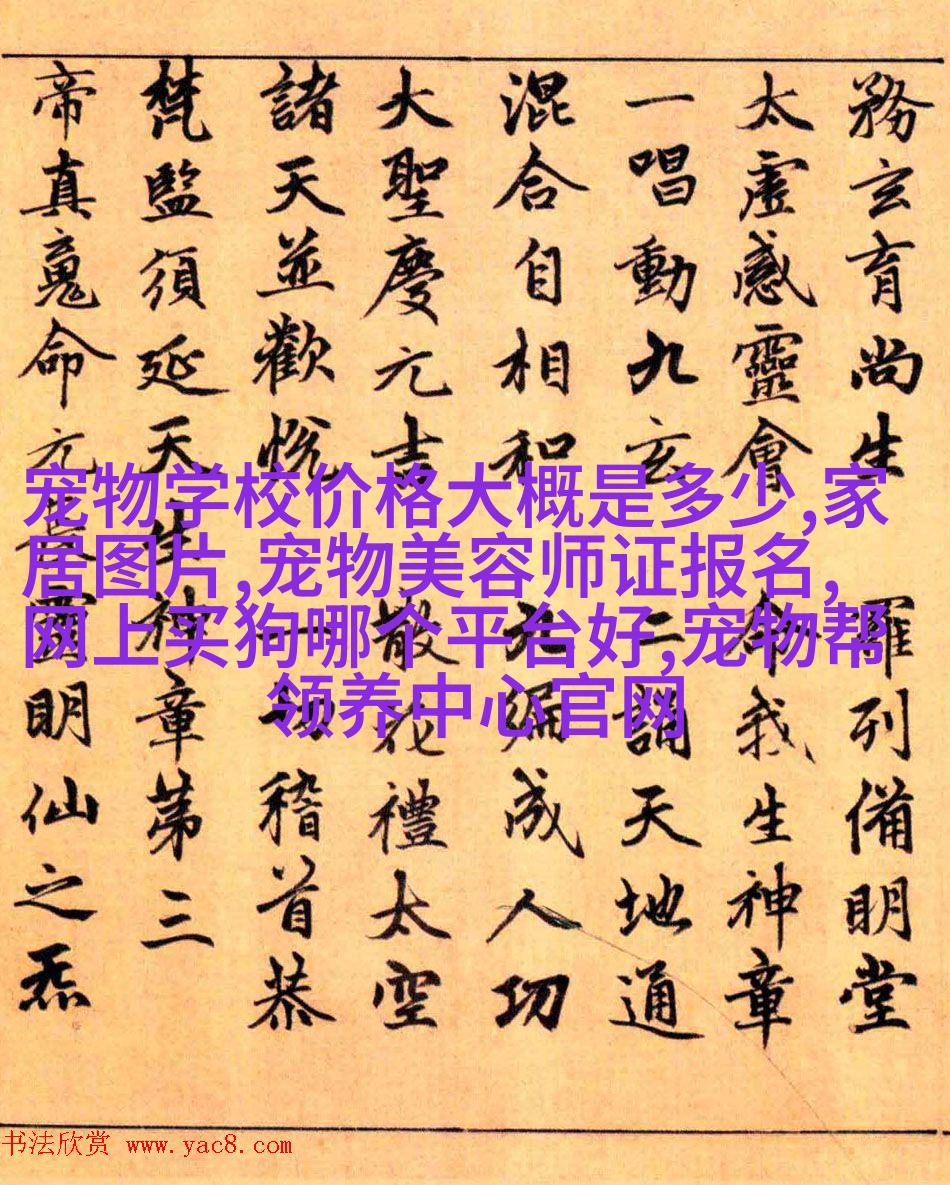 務玄育尚生 羅列備明堂
太虛感靈會 命我生神章
一唱動九玄 二誦天地通
混合自相和 九編成人功
大聖慶元吉 散花禮太空
諸天並歡悅 一切稽首恭
梵監須延天生神章第三
帝真魂命元長靈明仙之炁
宠物学校价格大概是多少,家
居图片,宠物美容师证报名,
网上买狗哪个平台好,宠物帮
领养中心官网
书法欣赏 www.yac8.com